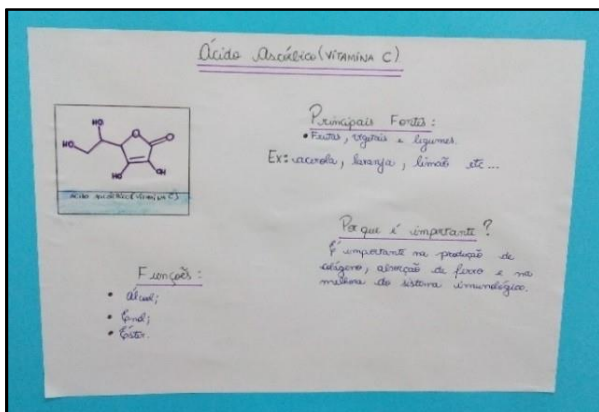 Ácido Ascórbico (VITAMINA C)
HO
HO
O
O
HO
OH
ácido ascórbico (vitamina C)
Principais Fontes:
• Frutas, vegetais e legumes.
Ex: acerola, laranja, limão etc...
Por que é importante?
É importante na produção de
colágeno, absorção de ferro e na
melhora do sistema imunológico.
Funções:
• Álcool;
• Enol;
• Éster.